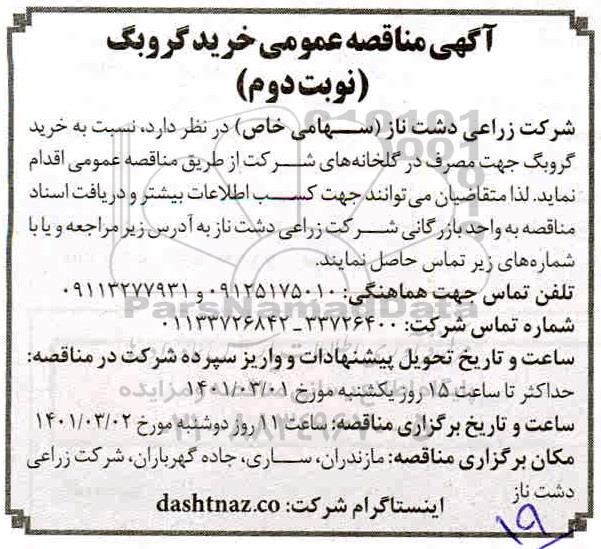 آگهی مناقصه عمومی خرید گروبگ
(نوبت دوم)
شرکت زراعی دشت ناز (سهامی خاص) در نظر دارد، نسبت به خرید
گروبگ جهت مصرف در گلخانه‌های شرکت از طریق مناقصه عمومی اقدام
نماید. لذا متقاضیان می توانند جهت کسب اطلاعات بیشتر و دریافت اسناد
مناقصه به واحد بازرگانی شرکت زراعی دشت ناز به آدرس زیر مراجعه و یا با
شماره‌های زیر تماس حاصل نمایند.
تلفن تماس جهت هماهنگی: ۰۹۱۲۵۱۷۵۰۱۰ و ۰۹۱۱۳۲۷۷۹۳۱
ParsNamadData
شماره تماس شرکت: ۳۳۷۲۶۴۰۰ ـ ۰۱۱۳۳۷۲۶۸۴۲
ساعت و تاریخ تحویل پیشنهادات و واریز سپرده شرکت در مناقصه:
حداکثر تا ساعت ۱۵ روز یکشنبه مورخ ۱۴۰۱/۰۳/۰۱
ساعت و تاریخ برگزاری مناقصه: ساعت ۱۱ روز دوشنبه مورخ ۱۴۰۱/۰۳/۰۲
مکان برگزاری مناقصه: مازندران، ساری، جاده گهرباران، شرکت زراعی
دشت ناز
اینستاگرام شرکت: dashtnaz.co
۱۹